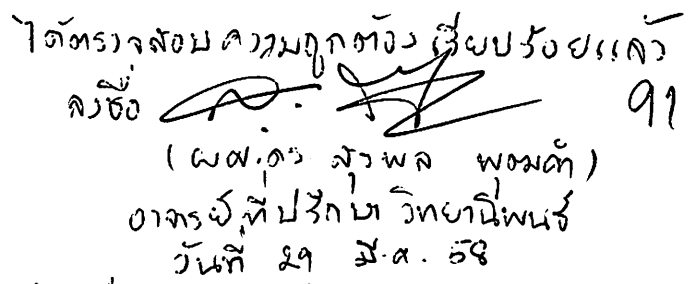 ได้ตรวจสอบความถูกต้อง เรียบร้อยแล้ว
ลงชื่อ
(ผศ.ดร สุรพล
อาจารย์ที่ปรึกษาวิทยานิพนธ์
วันที่ 29 มี.ค. 58